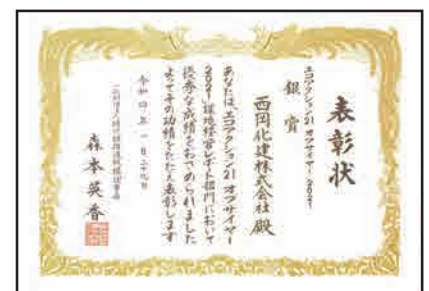 表彰状
エコアクション21 オブザイヤー2021
銀賞
西岡化建株式会社 殿
あなたは、エコアクション21 オブザイヤー
2021 環境経営レポート部門において
優秀な成績をおさめられました
よってその功績をたたえ表彰します
令和四年一月二十九日
森本英香